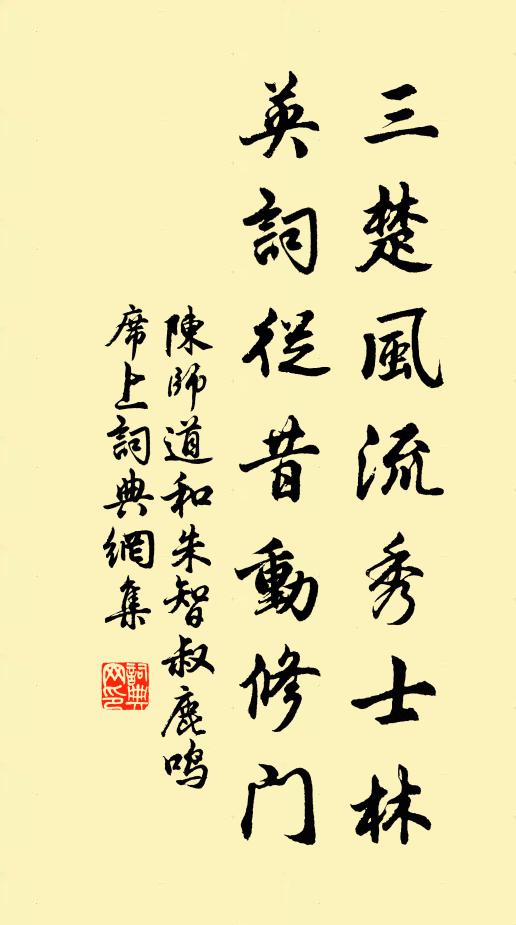 三楚風流秀士林
英詞從昔動修門
陳師道和朱智叔鹿鳴
席上詞典網集
詞典网印